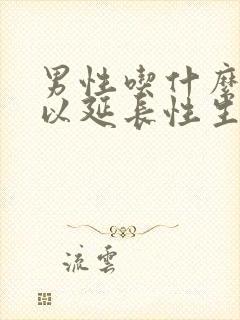 男性喫什麽
以延長性生
流雲